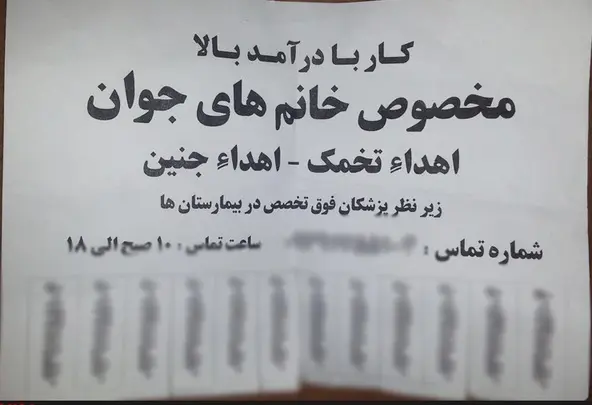 کار با درآمد بالا
مخصوص خانم های جوان
اهداءِ تخمک - اهداءِ جنین
زیر نظر پزشکان فوق تخصص در بیمارستان ها
شماره تماس : ساعت تماس : ۱۰ صبح الی ۱۸